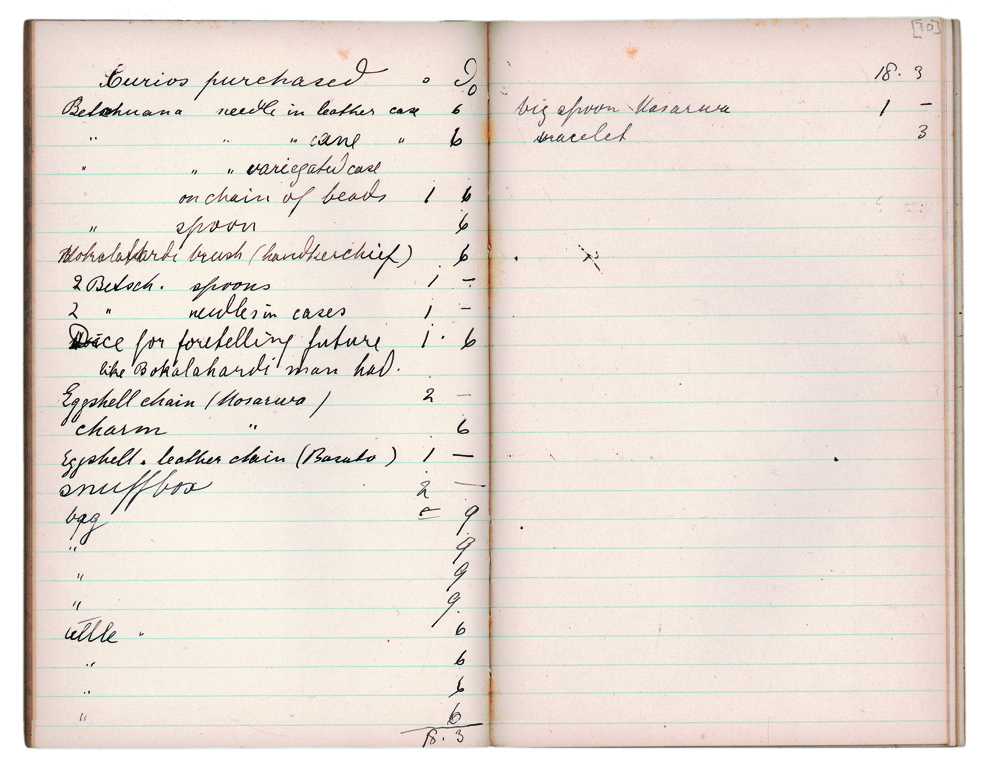 Curios purchased o D
Betschuana needle in leather case 6
" " " cane " 6
" " " variegated case
on chain of beads 1 6
" spoon 6
Mokalahardi brush (handkerchief) 6
2 Betsch. spoons 1 –
2 " needles in cases 1 –
Dice for foretelling future 1 · 6
like Bokalahardi man had.
Eggshell chain (Masarwa) 2 –
charm " 6
Eggshell . leather chain (Basuto) 1 –
snuffbox 2 –
bag 9
" 9
" 9
" 9.
little " 6
" 6
" 6
" 6
18. 3
[70]
18. 3
big spoon Masarwa 1 –
bracelet 3